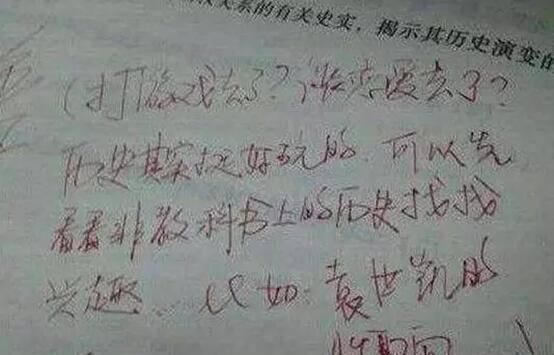 关系的有关史实，揭示其历史演变的
（打游戏去了？谈恋爱去了？
历史其实挺好玩的，可以先
看看非教科书上的历史找找
兴趣．比如：袁世凯的
取向）